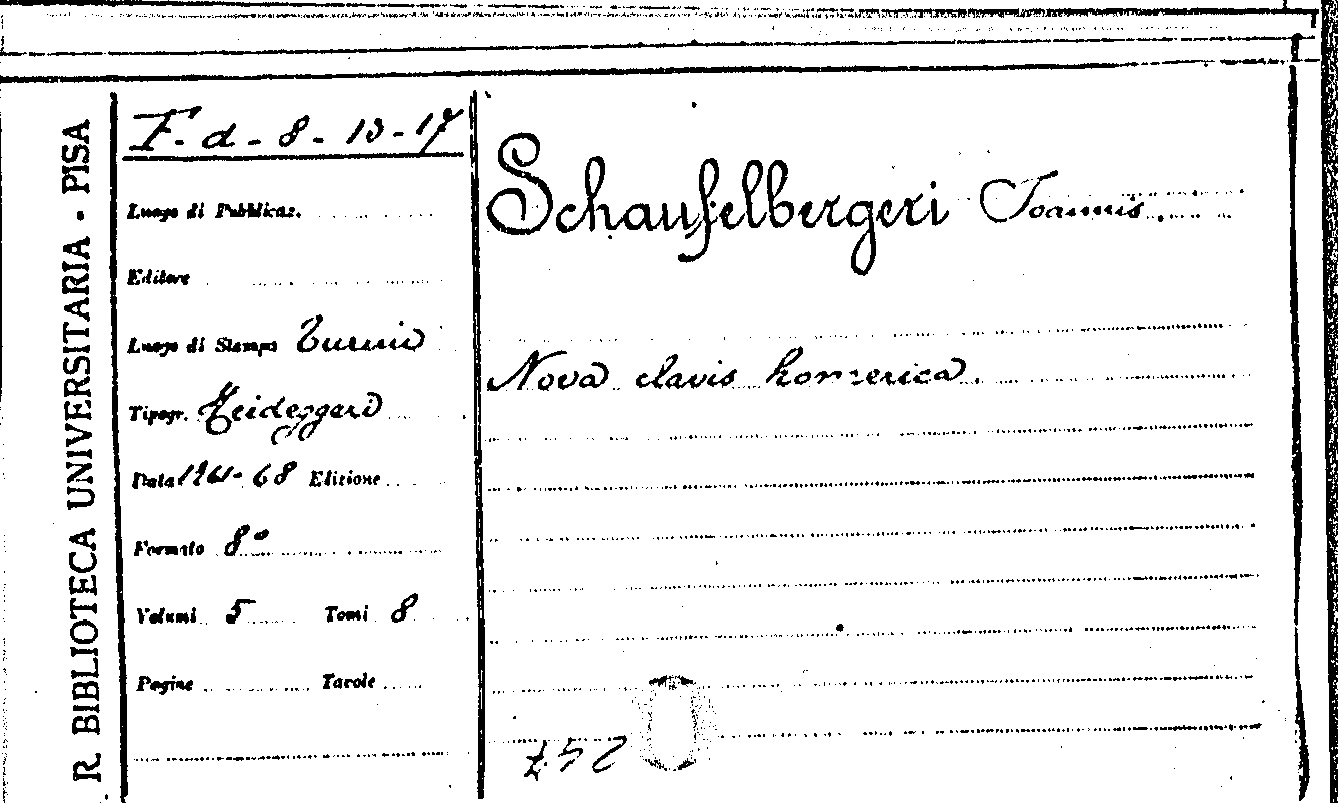 R. BIBLIOTECA UNIVERSITARIA - PISA
F. d - 8 - 13 - 17
Luogo di Pubblicaz.
Editore
Luogo di Stampa
Tipogr. Heideggeri
Data 1761-68 Edizione
Formato 8°
Volumi 5 Tomi 8
Pagine Tavole
Schaufelbergeri Joannis.
Nova clavis homerica.